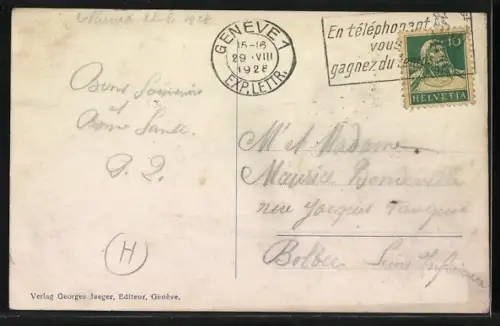 GENÈVE 1
15-16
29.VIII
1928
EXP.LETTR.
En téléphonant
vous
gagnez du temps
10
HELVETIA
Bons Souvenirs
et
Bonne Santé
M' et Madame
Maurice Bonneville
rue Jacques
Bolbec Seine Inférieure
H
Verlag Georges Jaeger, Editeur, Genève.